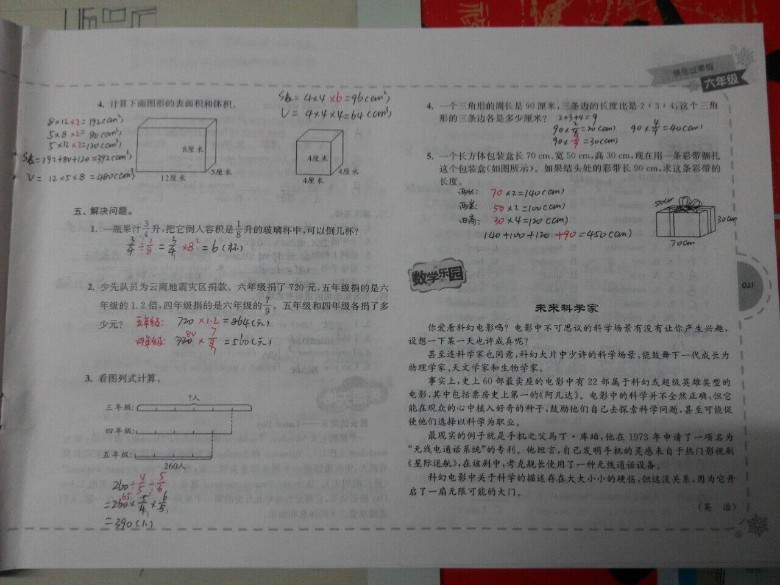 快乐过寒假
六年级
4. 计算下面图形的表面积和体积。
8×12×2=192(cm²)
5×8×2=80(cm²)
5×12×2=120(cm²)
S表=192+80+120=392(cm²)
V=12×5×8=480(cm³)
8厘米
12厘米
5厘米
S表=4×4×6=96(cm²)
V=4×4×4=64(cm³)
4厘米
4厘米
4厘米
五、解决问题。
1. 一瓶果汁3/4升,把它倒入容积是1/8升的玻璃杯中,可以倒几杯?
3/4÷1/8=3/4×8=6(杯)
2. 少先队员为云南地震灾区捐款。六年级捐了720元,五年级捐的是六
年级的1.2倍,四年级捐的是六年级的7/9。五年级和四年级各捐了多
少元?
五年级: 720×1.2=864(元)
四年级: 720×7/9=560(元)
3. 看图列式计算。
?人
三年级:
四年级:
五年级:
260人
260÷4/5÷5/6
=260×5/4×6/5
=390(人)
4. 一个三角形的周长是90厘米,三条边的长度比是2:3:4,这个三角
形的三条边各是多少厘米?
2+3+4=9
90×2/9=20(cm)
90×4/9=40(cm)
90×3/9=30(cm)
5. 一个长方体包装盒长70 cm,宽50 cm,高30 cm,现在用一条彩带捆扎
这个包装盒(如图所示)。如果结头处的彩带长90 cm,求这条彩带的
长度。
两长: 70×2=140(cm)
两宽: 50×2=100(cm)
四高: 30×4=120(cm)
140+100+120+90=450(cm)
50cm
30cm
70cm
数学乐园
021
未来科学家
你爱看科幻电影吗?电影中不可思议的科学场景有没有让你产生兴趣,
设想一下某一天也许成真呢?
甚至连科学家也同意,科幻大片中少许的科学场景,能鼓舞下一代成长为
物理学家、天文学家和生物学家。
事实上,史上60部最卖座的电影中有22部属于科幻或超级英雄类型的
电影,其中包括票房史上第一的《阿凡达》。电影中的科学并不全然正确,但它
能在观众的心中植入好奇的种子,鼓励他们自己去探索科学问题,甚至可能促
使他们选择以科学为职业。
最现实的例子就是手机之父马丁·库珀,他在1973年申请了一项名为
“无线电通话系统”的专利。他坦言,自己发明手机的灵感来自于热门影视剧
《星际迷航》,在该剧中,考克舰长使用了一种无线通话设备。
科幻电影中关于科学的描述存在大大小小的硬伤,但这没关系,因为它开
启了一扇无限可能的大门。